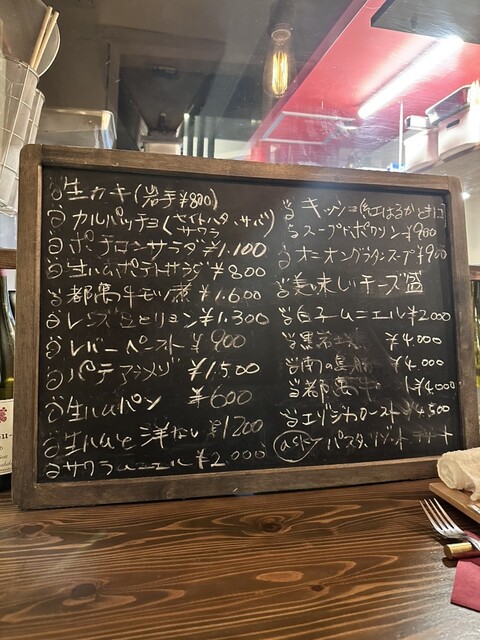 生カキ(岩手¥800)
カルパッチョ(セイトハタ・サバ
サワラ
ポテロンサラダ ¥1.100
生ハムポテトサラダ ¥800
都萬牛モツ煮 ¥1.600
レンズ豆とリヨン ¥1.300
レバーペースト ¥900
パテアラメゾ ¥1500
生ハムパン ¥600
生ハムと洋なし ¥1200
サワラムニエル ¥2.000
キッシュ(紅はるかときのこ
スープドポワソン ¥900
オニオングラタンスープ ¥900
美味しいチーズ盛
白子ムニエル ¥2000
黒岩土鶏 ¥4.000
南の島豚 ¥4.000
都萬牛 ¥4.000
エゾジカロースト ¥4500
ask パスタ,リゾット デザート